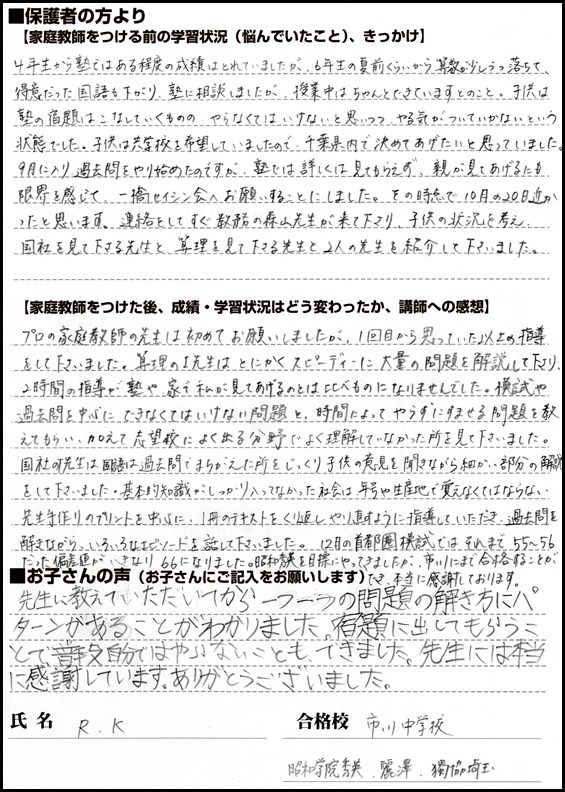 ■保護者の方より
【家庭教師をつける前の学習状況（悩んでいたこと）、きっかけ】
4年生から塾ではある程度の成績はとれていましたが、6年生の夏前くらいから算数が少しづつ落ちて、
得意だった国語も下がり、塾に相談しましたが、授業中はちゃんとできていますとのこと。子供は
塾の宿題はこなしていくものの、やらなくてはいけないと思いつつ、やる気がついていかないという
状態でした。子供は共学校を希望していましたので、千葉県内で決めてあげたいと思っていました。
9月に入り過去問をやり始めたのですが、塾では詳しくは見てもらえず、親が見てあげるにも
限界を感じて、一橋セイシン会へお願いすることにしました。その時点で10月の20日近か
ったと思います。連絡をしてすぐ教務の森山先生が来て下さり、子供の状況を考え、
国社を見て下さる先生と、算理を見て下さる先生と2人の先生を紹介して下さいました。
【家庭教師をつけた後、成績・学習状況はどう変わったか、講師への感想】
プロの家庭教師の先生は初めてお願いしましたが、1回目から思っていた以上の指導
をして下さいました。算理のI先生はとにかくスピーディーに大量の問題を解説して下り、
2時間の指導が塾や家で私が見てあげるのとは比べものになりませんでした。模試や
過去問を中心にできなくてはいけない問題と、時間によってやらずにすませる問題を教
えてもらい、加えて志望校によく出る分野でよく理解していなかった所を見て下さいました。
国社の先生は国語は過去問でまちがえた所をじっくり子供の意見を聞きながら細かい部分の解説
をして下さいました。基本的知識がしっかり入ってなかった社会は年号や生産地で覚えなくてはならない
先生手作りのプリントを中心に、1冊のテキストをくり返しやり直すように指導していただき、過去問を
解きながら、いろいろなエピソードを話して下さいました。12月の首都圏模試ではそれまで55〜56
だった偏差値がいきなり66になりました。昭和秀英を目標にやってきましたが、市川にまで合格することが
でき、本当に感謝しております。
■お子さんの声（お子さんにご記入をお願いします）
先生に教えていただいてから一つ一つの問題の解き方にパ
ターンがあることがわかりました。宿題に出してもらうこ
とで普段自分ではやらないことも、できました。先生には本当
に感謝しています。ありがとうございました。
氏名 R.K 合格校 市川中学校
昭和学院秀英、麗澤、獨協埼玉